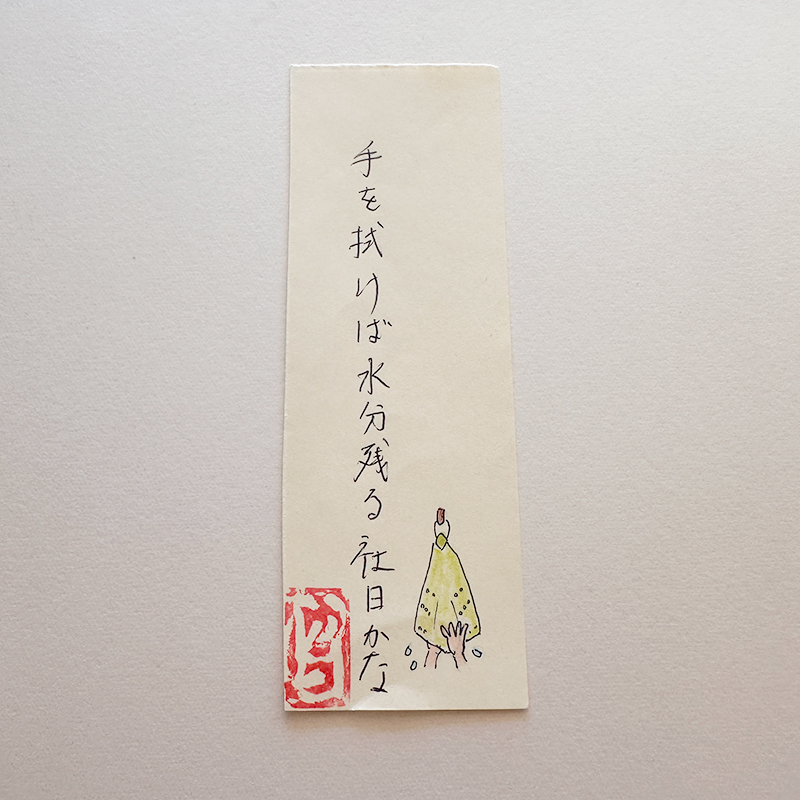 手を拭けば水分残る社日かな